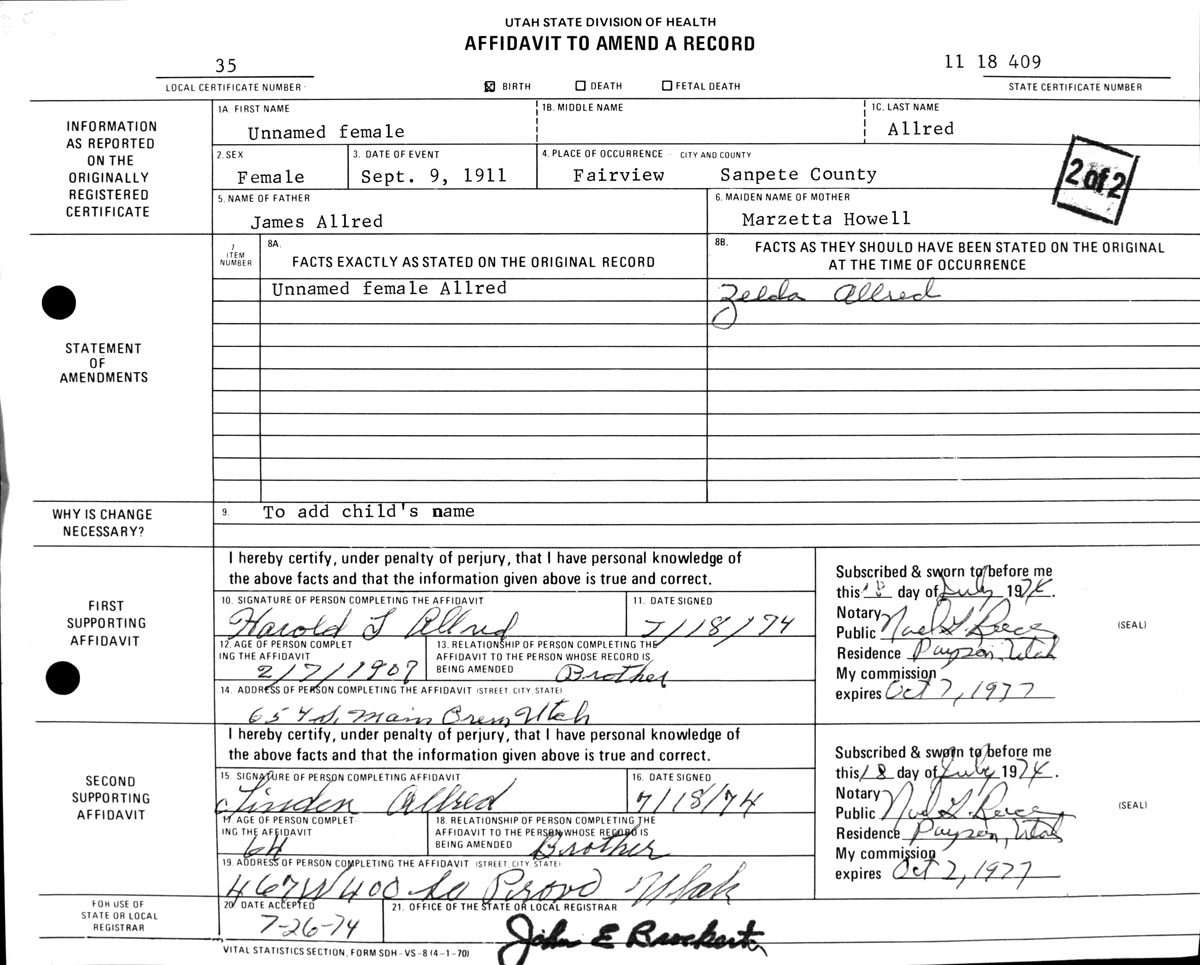 UTAH STATE DIVISION OF HEALTH
AFFIDAVIT TO AMEND A RECORD
35
LOCAL CERTIFICATE NUMBER
☒ BIRTH ☐ DEATH ☐ FETAL DEATH
11 18 409
STATE CERTIFICATE NUMBER
INFORMATION
AS REPORTED
ON THE
ORIGINALLY
REGISTERED
CERTIFICATE
1A. FIRST NAME
Unnamed female
1B. MIDDLE NAME
1C. LAST NAME
Allred
2. SEX
Female
3. DATE OF EVENT
Sept. 9, 1911
4. PLACE OF OCCURRENCE - CITY AND COUNTY
Fairview Sanpete County
2 of 2
5. NAME OF FATHER
James Allred
6. MAIDEN NAME OF MOTHER
Marzetta Howell
STATEMENT
OF
AMENDMENTS
7
ITEM
NUMBER
8A.
FACTS EXACTLY AS STATED ON THE ORIGINAL RECORD
8B. FACTS AS THEY SHOULD HAVE BEEN STATED ON THE ORIGINAL
AT THE TIME OF OCCURRENCE
Unnamed female Allred
Zelda Allred
WHY IS CHANGE
NECESSARY?
9. To add child's name
FIRST
SUPPORTING
AFFIDAVIT
I hereby certify, under penalty of perjury, that I have personal knowledge of
the above facts and that the information given above is true and correct.
10. SIGNATURE OF PERSON COMPLETING THE AFFIDAVIT
Harold L Allred
11. DATE SIGNED
7/18/74
12. AGE OF PERSON COMPLET
ING THE AFFIDAVIT
2/7/1907
13. RELATIONSHIP OF PERSON COMPLETING THE
AFFIDAVIT TO THE PERSON WHOSE RECORD IS
BEING AMENDED Brother
14. ADDRESS OF PERSON COMPLETING THE AFFIDAVIT (STREET, CITY, STATE)
654 S. Main Orem Utah
Subscribed & sworn to before me
this 18 day of July 1974.
Notary
Public
Residence Payson, Utah
My commission
expires Oct 7, 1977
(SEAL)
SECOND
SUPPORTING
AFFIDAVIT
I hereby certify, under penalty of perjury, that I have personal knowledge of
the above facts and that the information given above is true and correct.
15. SIGNATURE OF PERSON COMPLETING AFFIDAVIT
Linden Allred
16. DATE SIGNED
7/18/74
17 AGE OF PERSON COMPLET-
ING THE AFFIDAVIT
64
18. RELATIONSHIP OF PERSON COMPLETING THE
AFFIDAVIT TO THE PERSON WHOSE RECORD IS
BEING AMENDED Brother
19. ADDRESS OF PERSON COMPLETING THE AFFIDAVIT (STREET, CITY, STATE)
467 W 400 So Provo Utah
Subscribed & sworn to before me
this 18 day of July 1974.
Notary
Public
Residence Payson, Utah
My commission
expires Oct 7, 1977
(SEAL)
FOR USE OF
STATE OR LOCAL
REGISTRAR
20 DATE ACCEPTED
7-26-74
21. OFFICE OF THE STATE OR LOCAL REGISTRAR
John E Brockert
VITAL STATISTICS SECTION, FORM SDH-VS-8 (4-1-70)